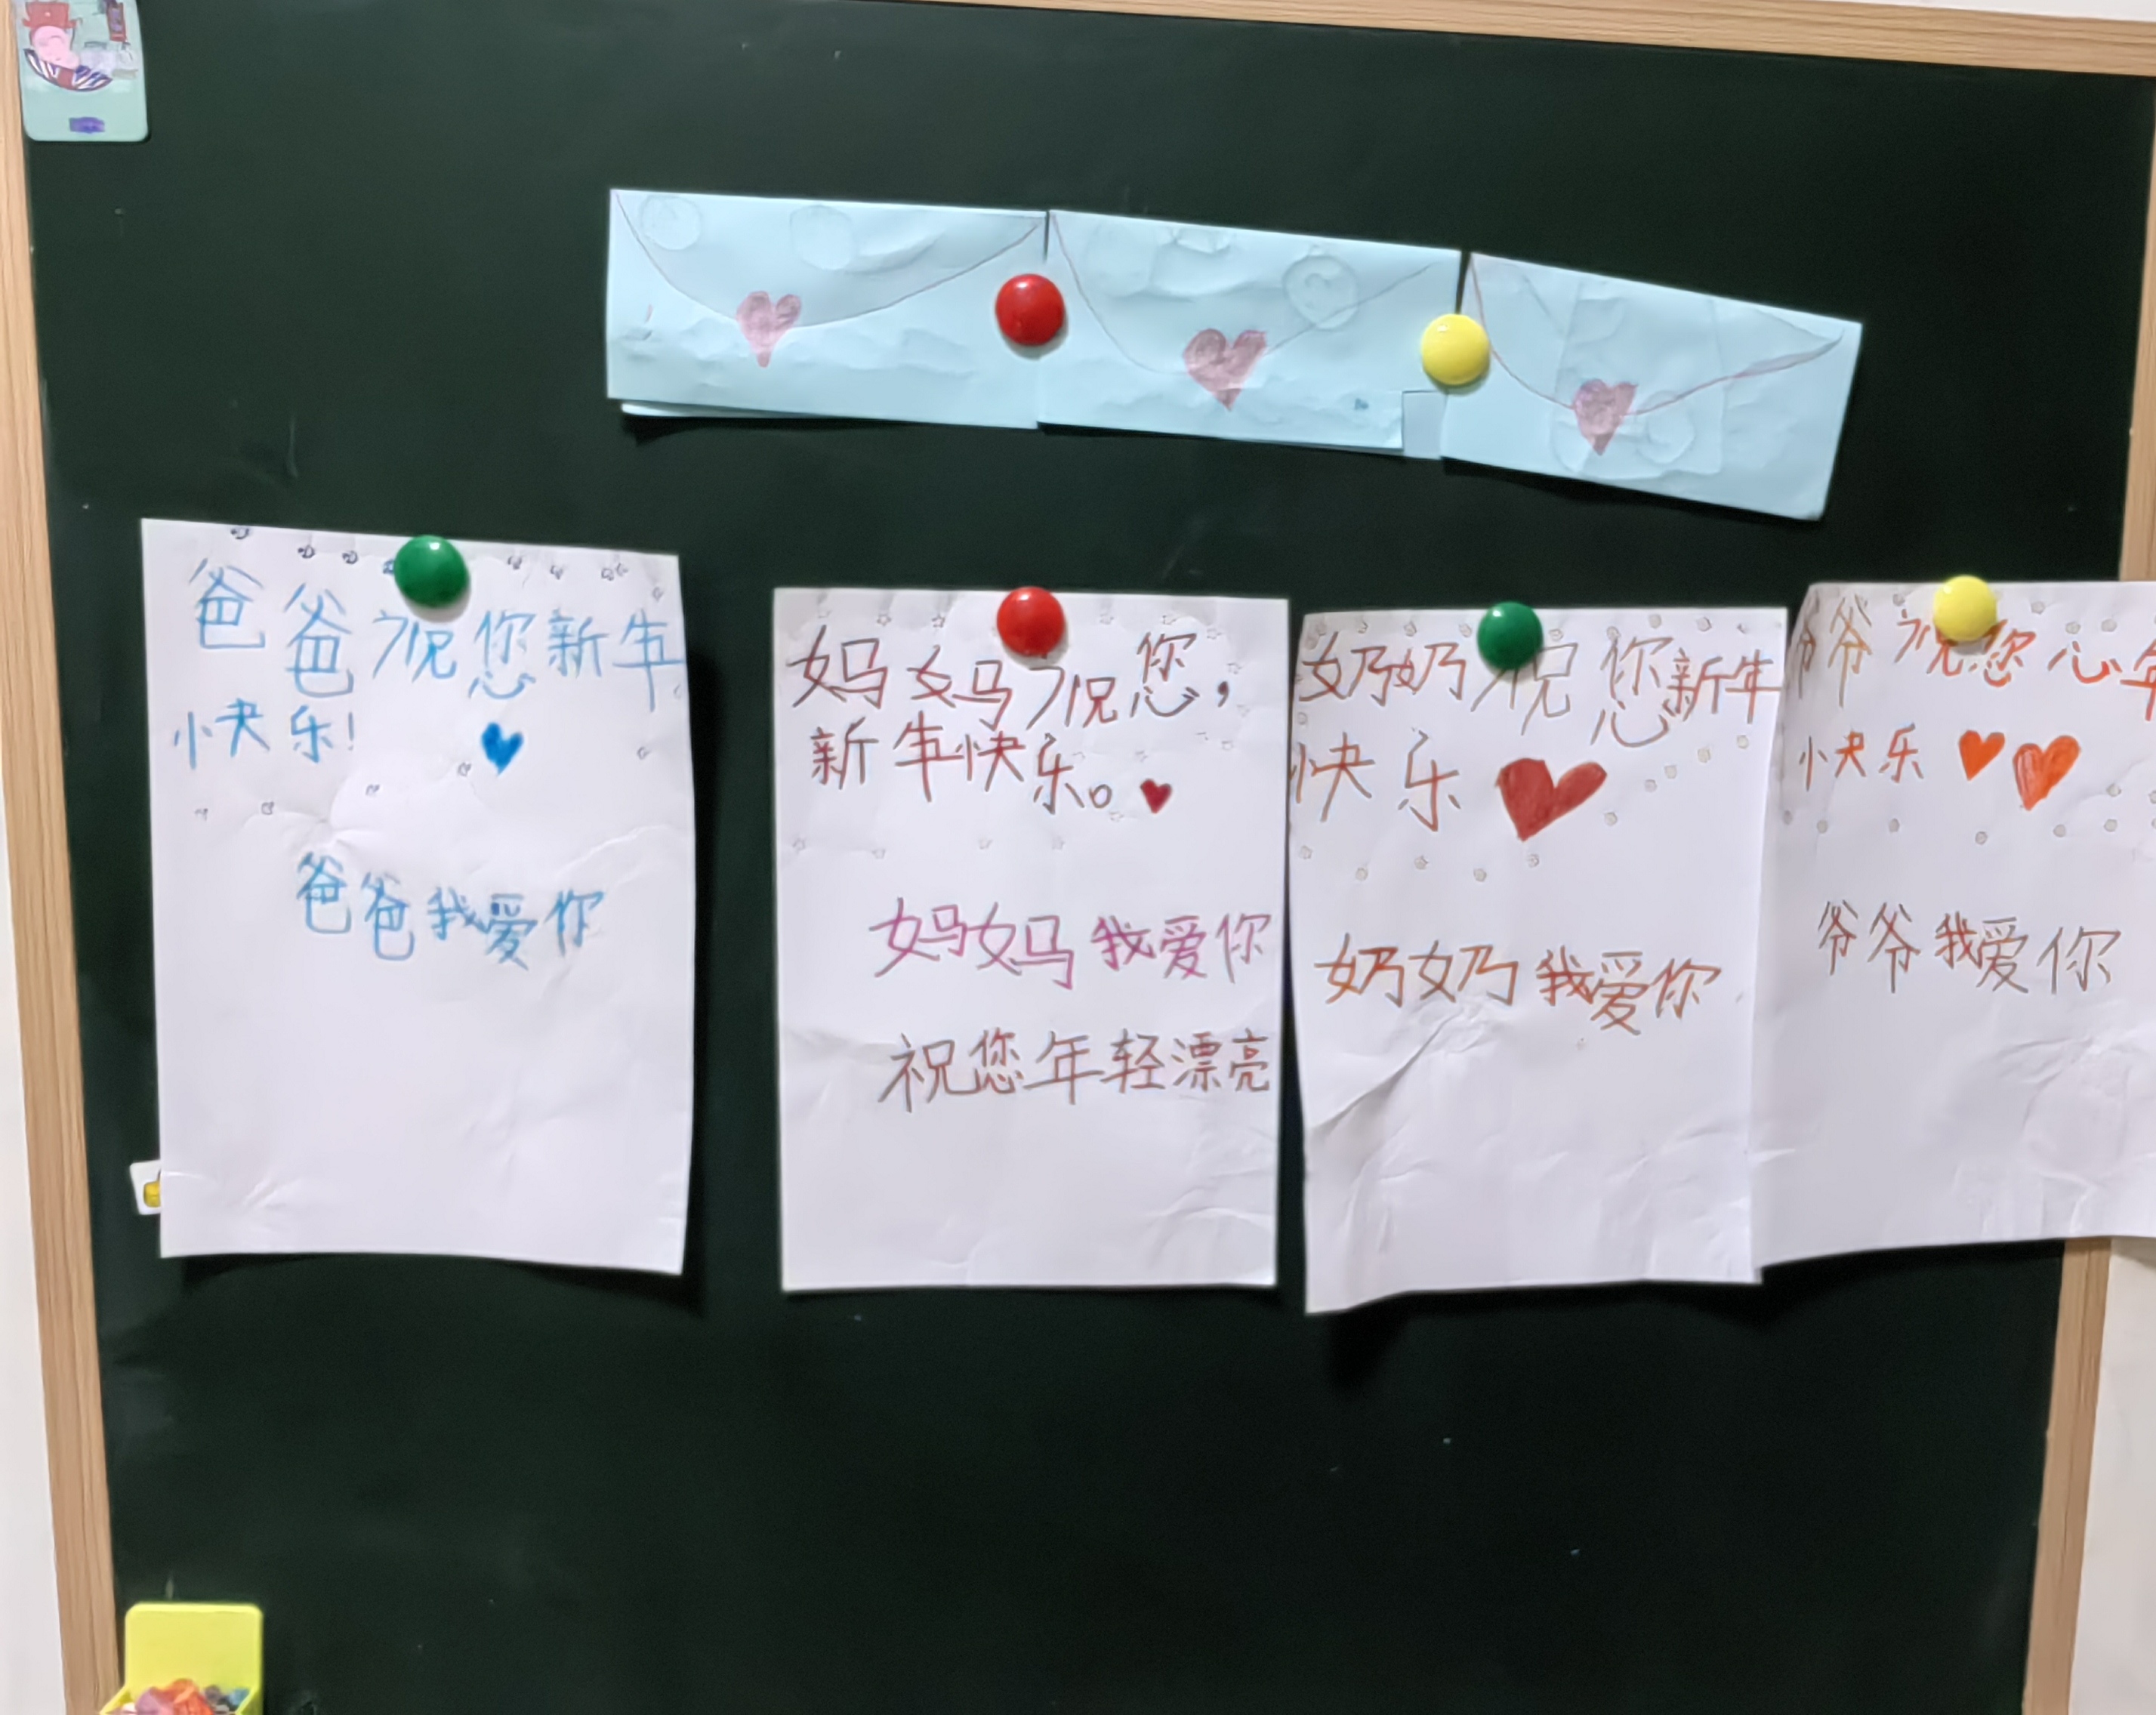 爸爸祝您新年
快乐!
爸爸我爱你
妈妈祝您,
新年快乐。
妈妈我爱你
祝您年轻漂亮
奶奶祝您新年
快乐
奶奶我爱你
爷爷祝您心年
快乐
爷爷我爱你